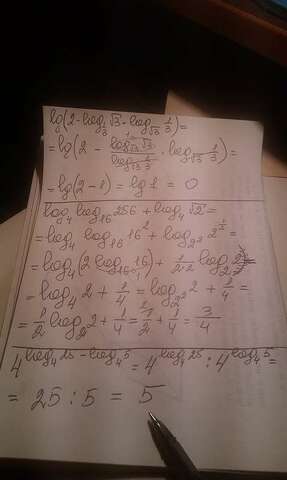 lg(2-log_{1/3}√3·log_{√3} 1/3)=
=lg(2 - log_{√3}√3 / log_{√3} 1/3 · log_{√3} 1/3)=
=lg(2-1)=lg1=0
log_4 log_{16} 256 + log_4 √2=
=log_4 log_{16} 16^2 + log_{2^2} 2^{1/2}=
=log_4(2log_{16} 16)+ 1/2·2 log_2 2=
=log_4 2+ 1/4 =log_{2^2} 2+ 1/4=
= 1/2 log_2 2+ 1/4 = 1/2 + 1/4 = 3/4
4^{log_4 25 - log_4 5} = 4^{log_4 25} : 4^{log_4 5} =
= 25 : 5 = 5